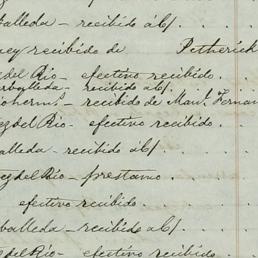 alleda - recibido á c/
ey recibido de Petherick
del Rio - efectivo recibido.
rballeda - recibido á c/
oherms - recibido de Man.l Fernan
ez del Rio - efectivo recibido.
alleda - recibido á c/
ez del Rio - prestamo.
efectivo recibido.
balleda - recibido á c/
del Rio - efectivo recibido